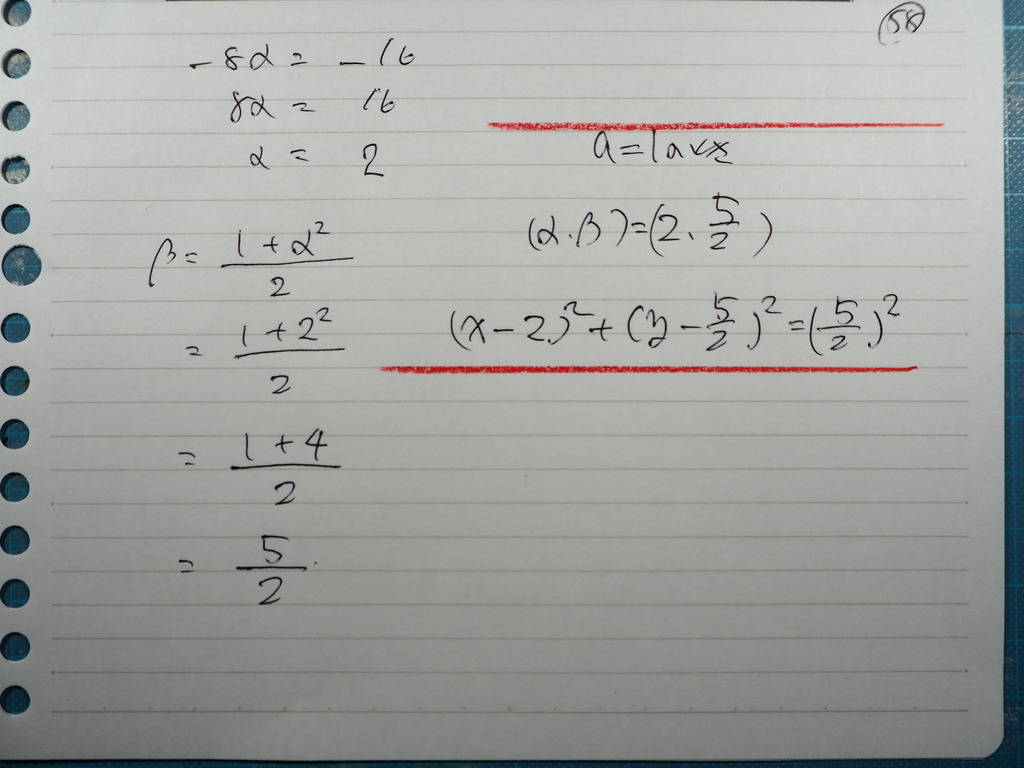 58
-8α = -16
8α = 16
α = 2
β = \frac{1+α^2}{2}
= \frac{1+2^2}{2}
= \frac{1+4}{2}
= \frac{5}{2}.
(α.β)=(2、\frac{5}{2})
(x-2)^2+(y-\frac{5}{2})^2=(\frac{5}{2})^2